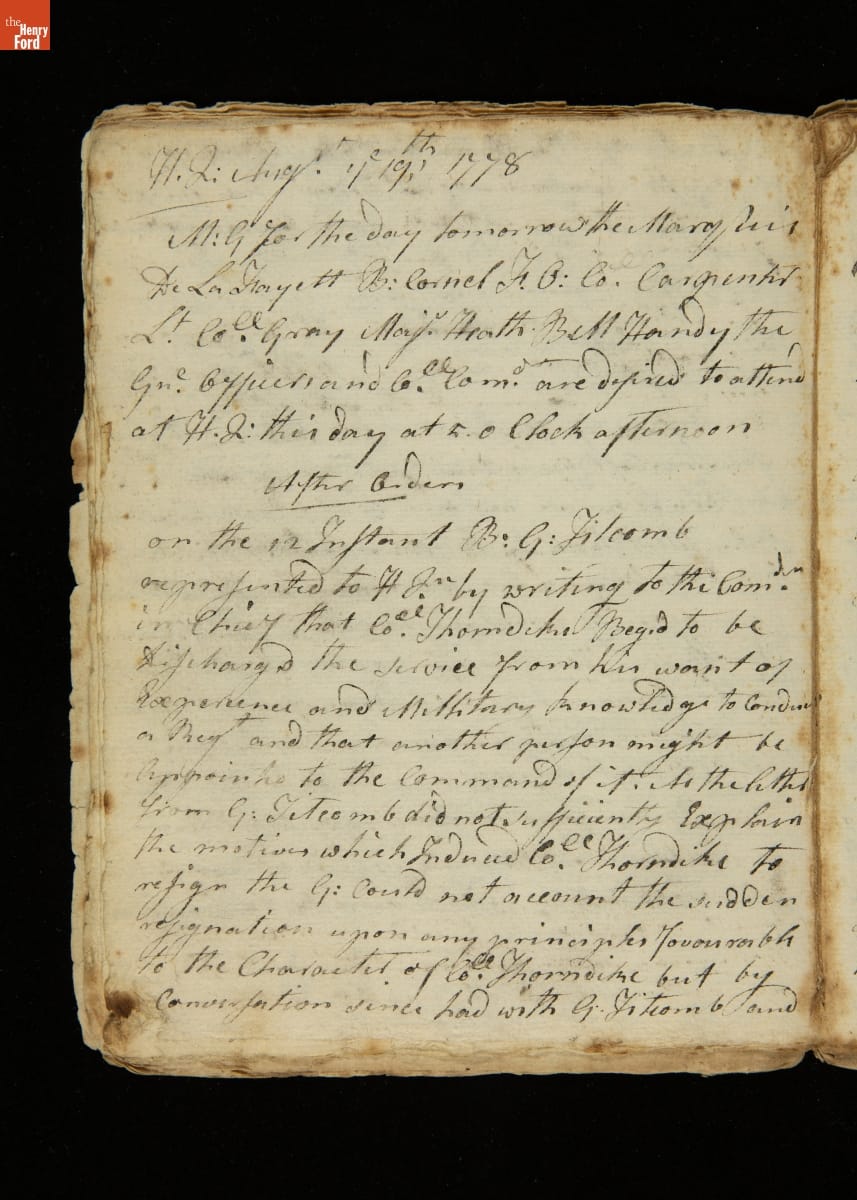 the
Henry
Ford
H. Q: Augst. ye 19th 1778
M: G for the day tomorrow the Marquis
De La Fayett B: Cornel F. O: Col. Carpenter
Lt. Coll. Gray Majr. Heath Bett Handy the
Gnl. Officers and Coll. Comd. are desired to attend
at H. Q: this day at 5. o Clock afternoon
After Orders
on the 12 Instant B: G: Titcomb
represented to H Qr. by writing to the Comdr.
in Chief that Coll. Thorndike Beged to be
Discharged the service from his want of
Experience and Millitary knowledge to Conduct
a Regt and that another person might be
Appointed to the Command of it. As the letter
from G: Titcomb did not sufficiently Explain
the motives which Induced Coll. Thorndike to
resign the G: Could not account the sudden
resignation upon any principles favourable
to the Character of Coll. Thorndike but by
Conversation since had with G. Titcomb and